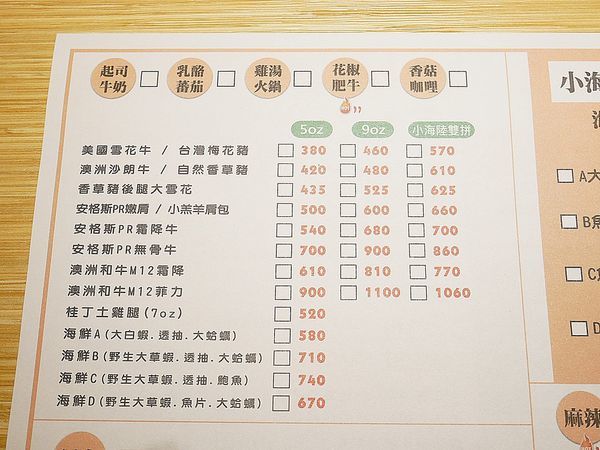 起司牛奶 □ 乳酪蕃茄 □ 雞湯火鍋 □ 花椒肥牛 □ 香菇咖哩 □
5oz 9oz 小海陸雙拼
美國雪花牛 / 台灣梅花豬 □ 380 □ 460 □ 570
澳洲沙朗牛 / 自然香草豬 □ 420 □ 480 □ 610
香草豬後腿大雪花 □ 435 □ 525 □ 625
安格斯PR嫩肩 / 小羔羊肩包 □ 500 □ 600 □ 660
安格斯PR霜降牛 □ 540 □ 680 □ 700
安格斯PR無骨牛 □ 700 □ 900 □ 860
澳洲和牛M12霜降 □ 610 □ 810 □ 770
澳洲和牛M12菲力 □ 900 □ 1100 □ 1060
桂丁土雞腿(7oz) □ 520
海鮮A(大白蝦.透抽.大蛤蠣) □ 580
海鮮B(野生大草蝦.透抽.大蛤蠣) □ 710
海鮮C(野生大草蝦.透抽.鮑魚) □ 740
海鮮D(野生大草蝦.魚片.大蛤蠣) □ 670
小海
□ A大
□ B魚
□ C
□ D
麻辣